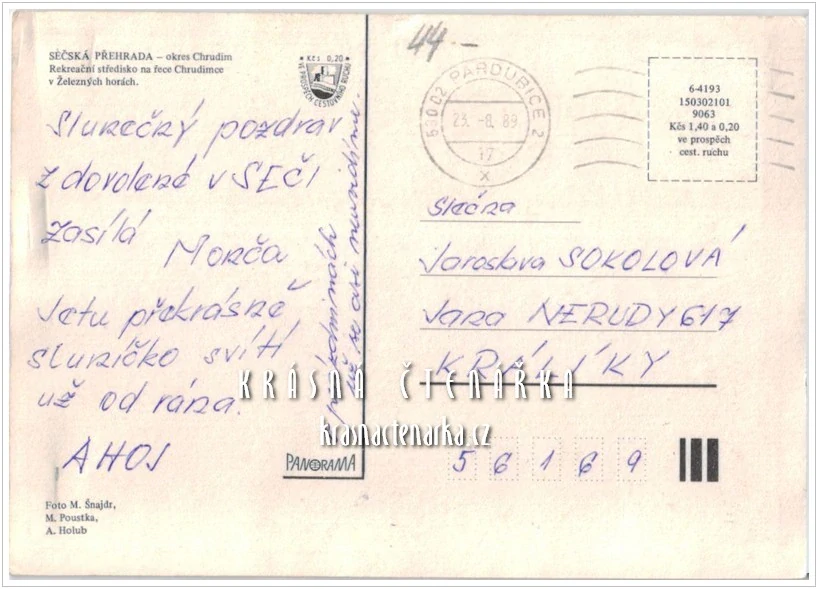 SEČSKÁ PŘEHRADA – okres Chrudim
Rekreační středisko na řece Chrudimce
v Železných horách.
Kčs 0,20
VE PROSPĚCH CESTOVNÍHO RUCHU
Slunečný pozdrav
z dovolené v SEČI
zasílá
Morča
Je tu překrásně
sluníčko svítí
už od rána.
AHOJ
před prázdninách
než se asi neuvidíme.
PANORAMA
Foto M. Šnajdr,
M. Poustka,
A. Holub
44.–
530 02 PARDUBICE 2
23. -8. 89
17
x
6-4193
150302101
9063
Kčs 1,40 a 0,20
ve prospěch
cest. ruchu
Slečna
Jaroslava SOKOLOVÁ
Jana NERUDY 617
KRÁLÍKY
56169
KRÁSNÁ ČTENÁŘKA
krasnactenarka.cz